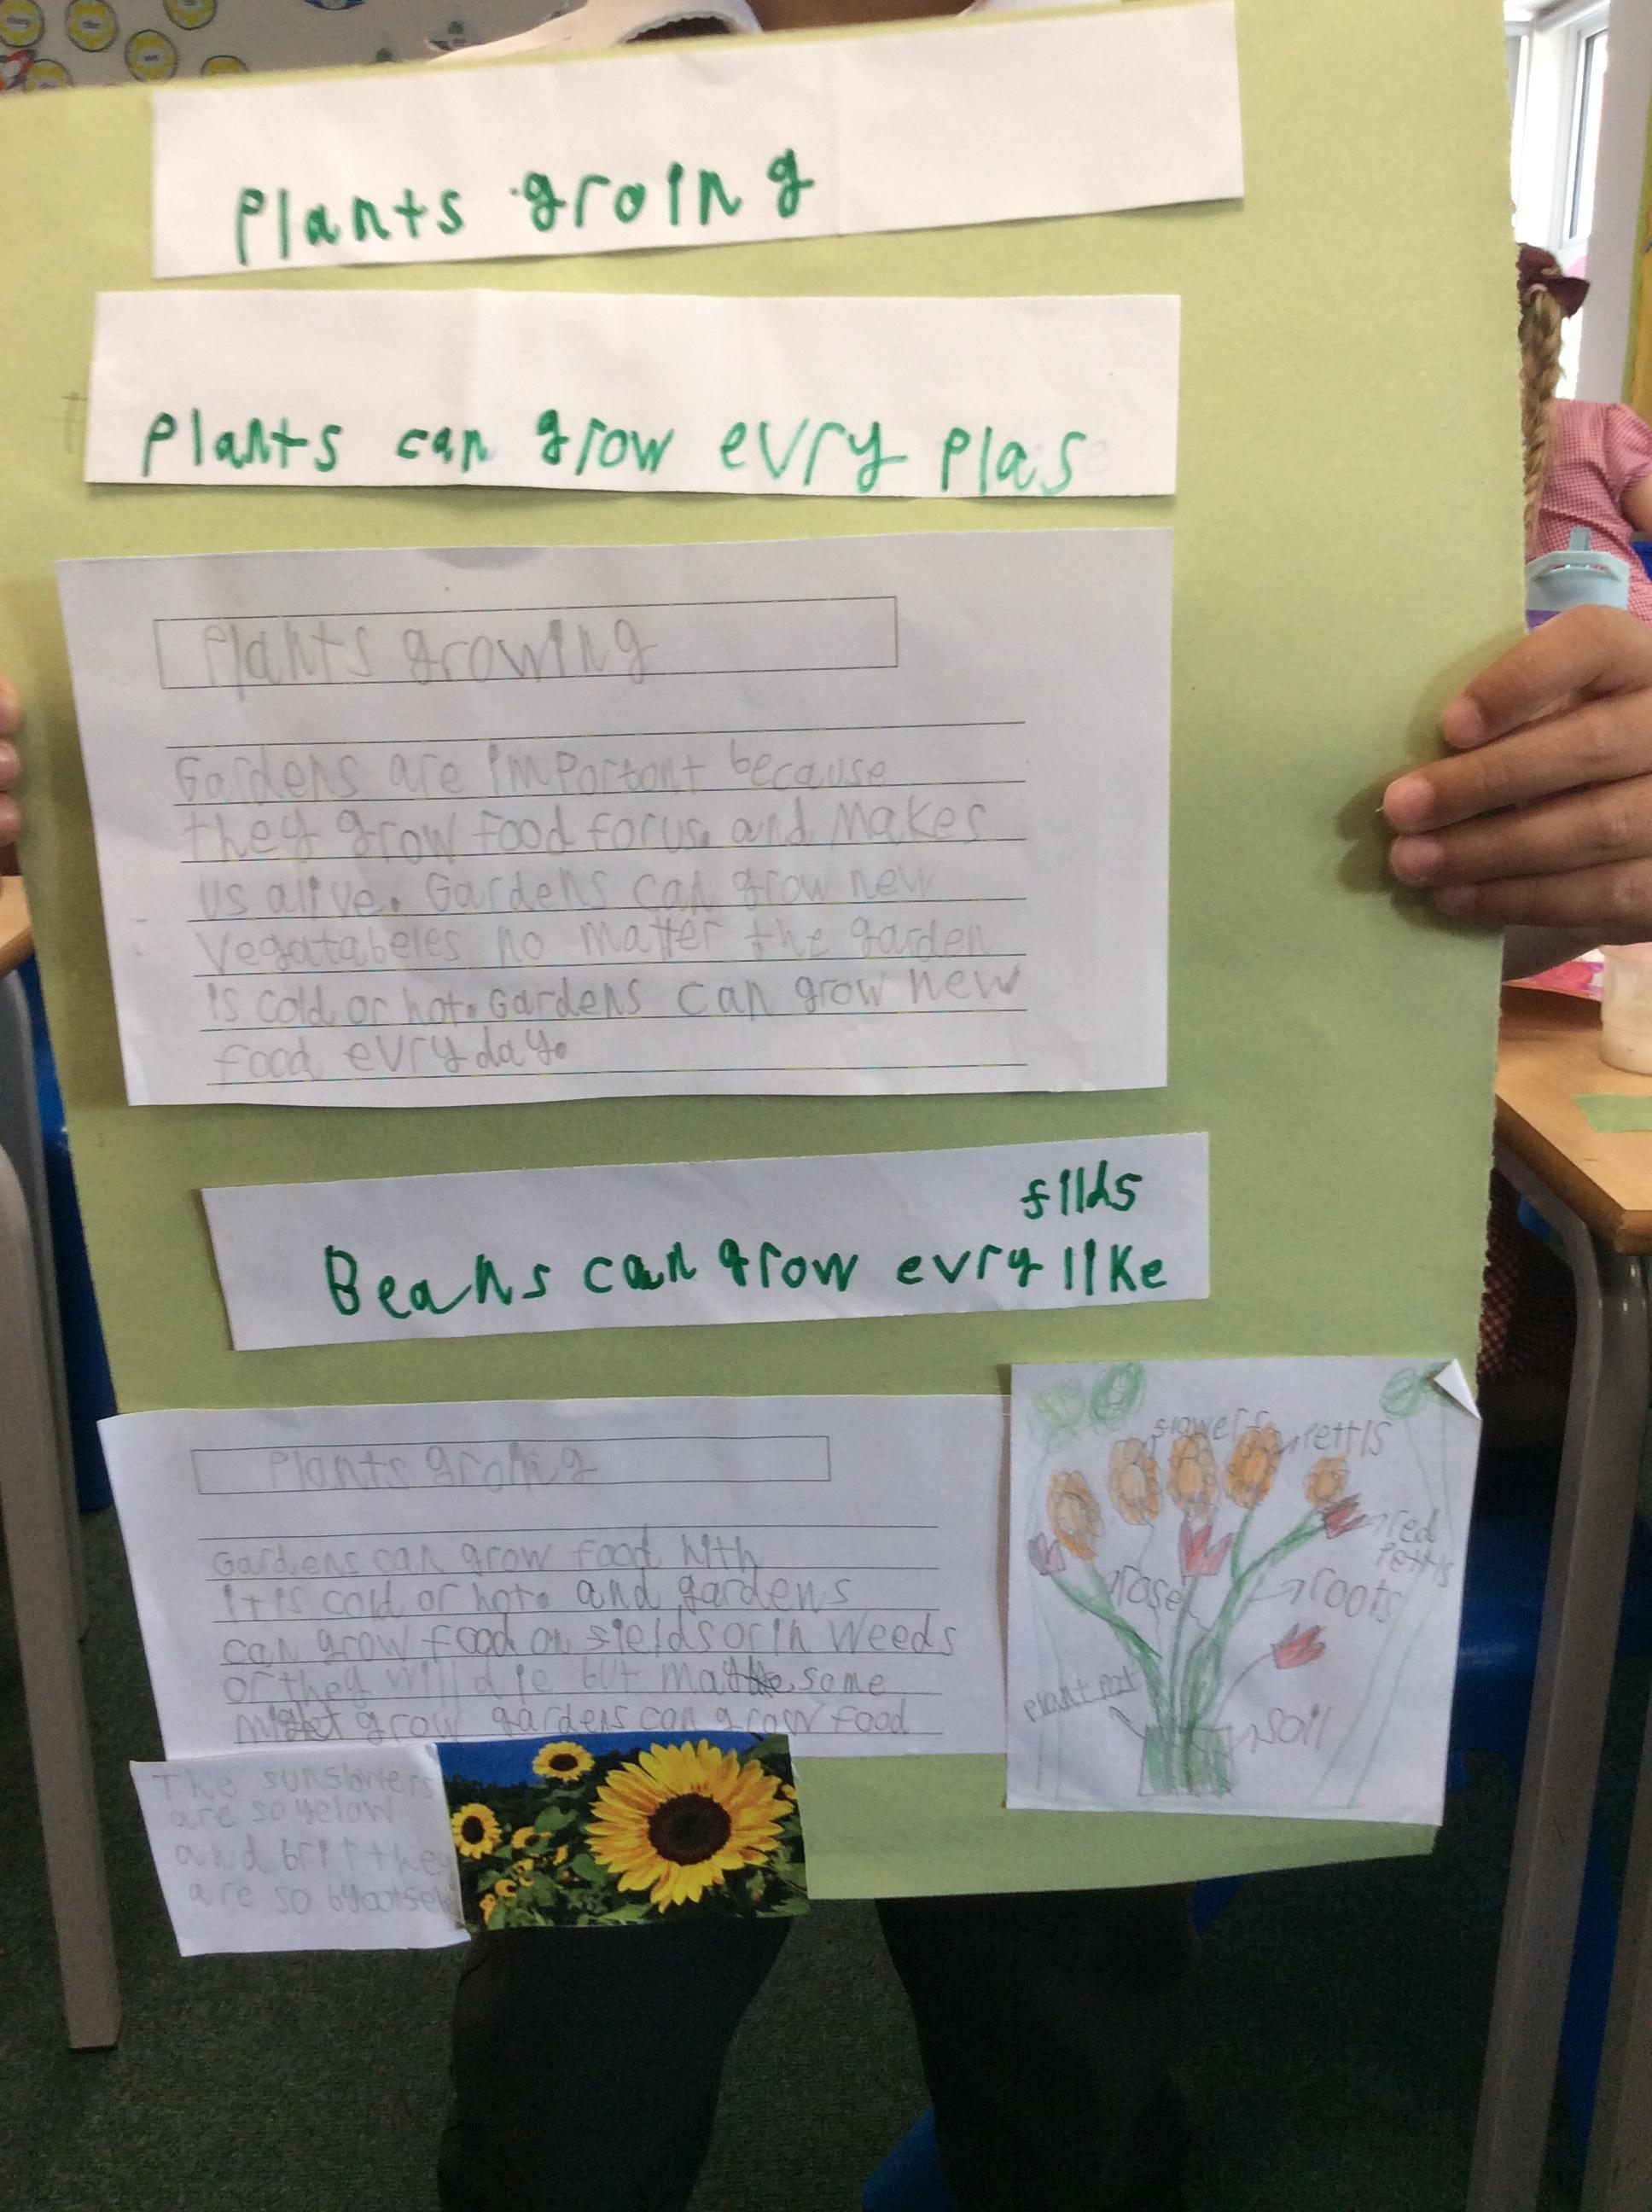 Plants groing
Plants can grow evry plas
Plants growing
Gardens are important because
they grow food for us. and makes
us alive. Gardens can grow new
vegatabeles no matter the garden
is cold or hot. Gardens can grow new
food evry day.
filds
Beans can grow evry like
Plants groing
Gardens can grow food with
it is cold or hot. and gardens
can grow food on fields or in weeds
or they will die but some
might grow gardens can grow food
The sunflowers
are so yelow
and brit they
are so
flowers
pettls
red
pettls
rose
roots
plant pot
soil